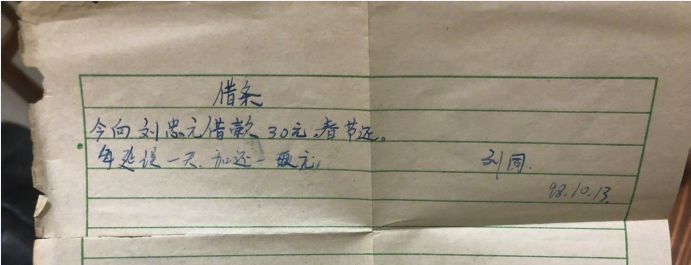 借条
今向刘忠元借款30元,春节还。
每延误一天,加还一元。
刘同.
98.10.13.